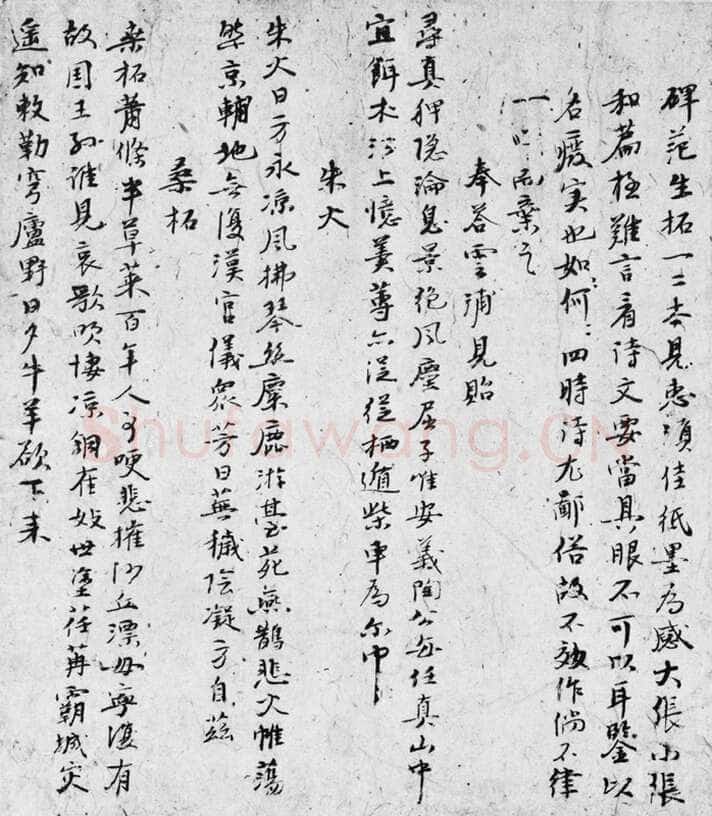 碑范生拓一二本見惠須佳紙墨為感大張小張
和篇極難言看詩文要當具眼不可以耳鑒以
名廢実也如何如何四時詩尤鄙俗故不效作倘不律
一 而棄之
奉答雲浦見貽
尋真狎隐淪息景絶風塵居子惟安義陶公每任真山中
宜餌朮沙上憶羹蓴亦足從栖遁柴車為爾巾
朱火
朱火日方永凉風拂琴丝麋鹿游臺苑燕鵲悲火帷蕩
然京輔地無復漢官儀衆芳日蕪穢陰凝方自兹
桑柘
桑柘蕭條半草萊百年人事哽悲摧沙丘漂 寧復有
故國王孫誰見哀歌吹悽凉銅雀妓世塗荏苒霸城灾
遥知敕勒穹廬野日夕牛羊欲下来
Shufawang.CN